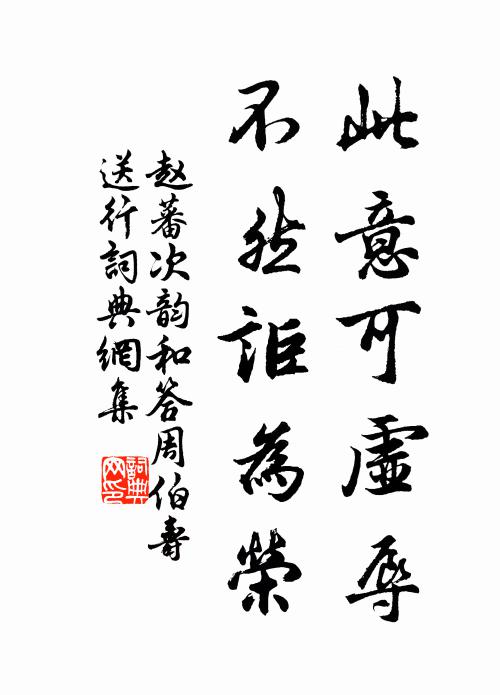 此意可虛辱
不然詎為榮
赵蕃次韵和答周伯壽
送行詞典網集
詞典
网印